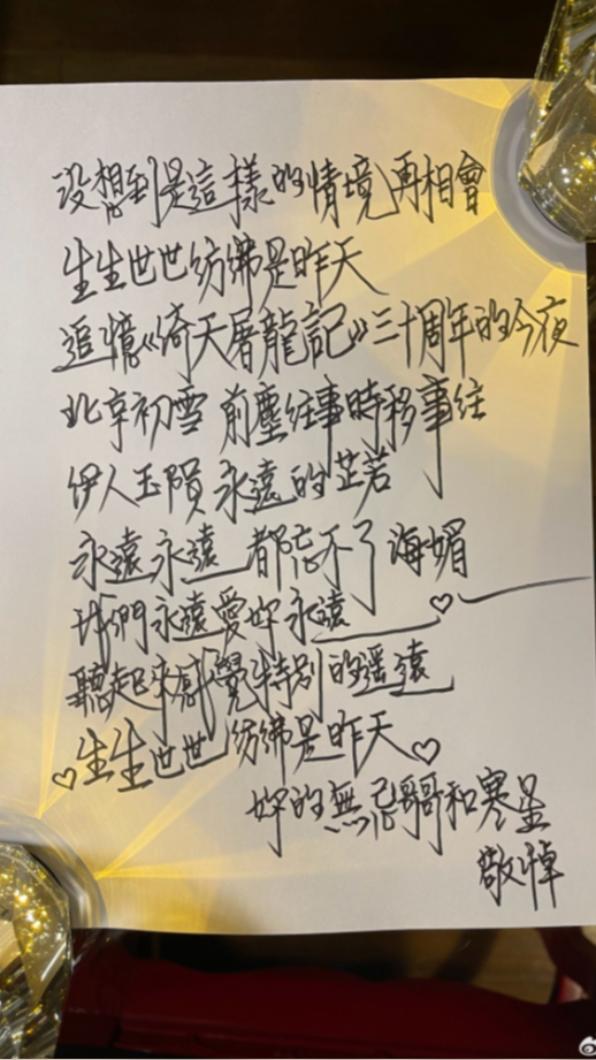 沒想到是這樣的情境再相會
生生世世紡彿是昨天
追憶《倚天屠龍記》三十周年的今夜
北京初雪 前塵往事時移事往
伊人玉隕 永遠的芷若
永遠永遠 都忘不了 海媚
我們永遠愛妳永遠
聽起來感覺特別的遥遠
生生世世紡彿是昨天
妳的無忌哥哥和寒星
敬悼